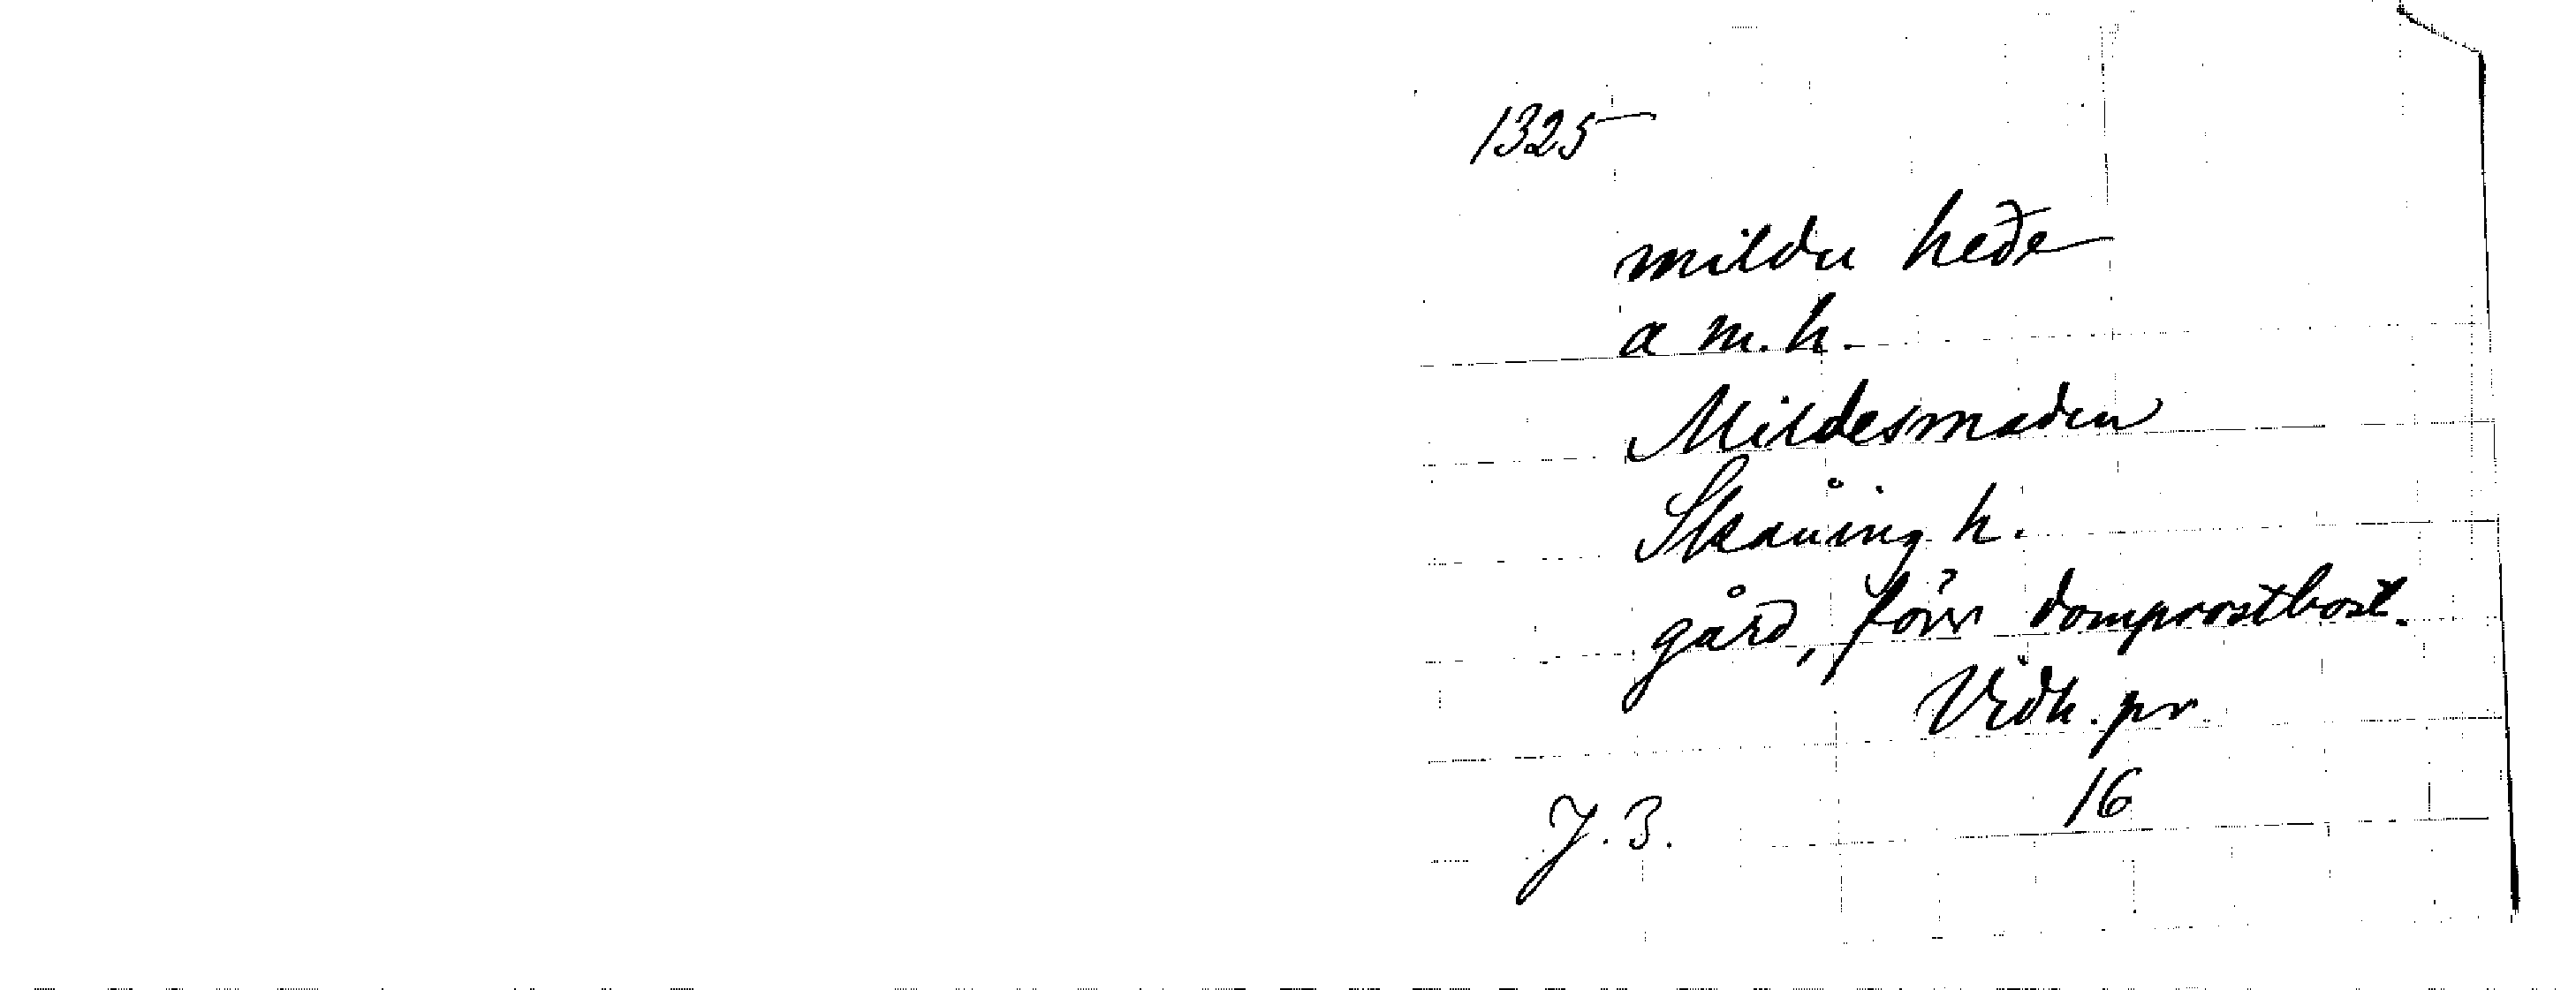 1325
mildu heðe
a m.h.
Mildesmaden
Skåning h.
gård, förr domprostbost.
Vidh. pr
J. 3. 16